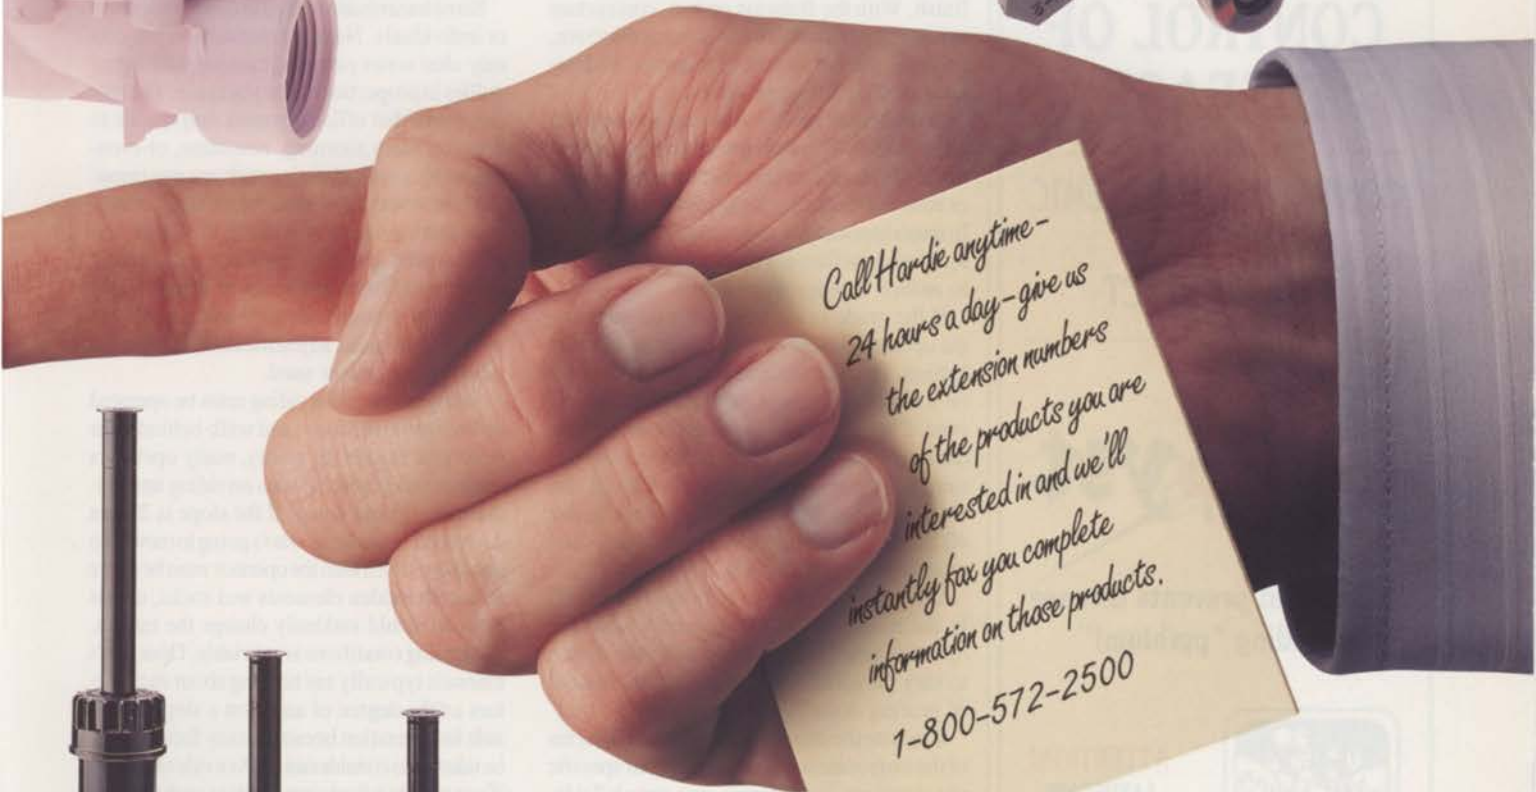 Call Hardie anytime-
24 hours a day-give us
the extension numbers
of the products you are
interested in and we'll
instantly fax you complete
information on those products.
1-800-572-2500